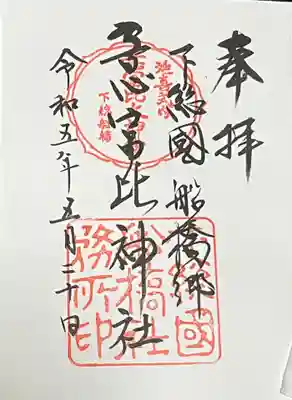 奉拝
下総國 船橋郷
意富比神社
令和五年五月二十日
下総船橋